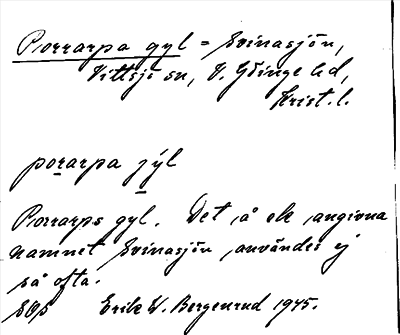 Porrarpa gyl = Svinasjön,
Vittsjö sn, V. Göinge hd,
Krist. l.
porarpa jýl
Porrarps gyl. Det å ek angivna
namnet Svinasjön användes ej
så ofta.
Erik W. Bergenrud 1945.